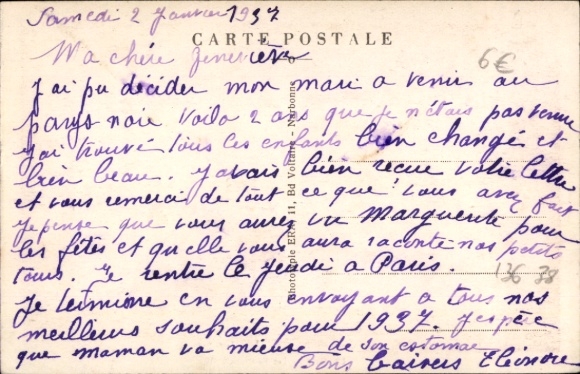 Samedi 2 Janvier 1937
CARTE POSTALE
6€
Ma chère Geneviève
J'ai pu decider mon mari a venir au
pays voila 2 ans que je n'étais pas venue
j'ai trouvé tous les enfants bien changé et
bien beau. J'avais bien recue votre lettre
et vous remerci de tout ce que vous avez fait
Je pense que vous aurez vu Marguerite pour
les fêtes et qu'elle vous aura raconte nos petits
tours. Je rentre le jeudi a Paris.
136 38
Je termine en vous envoyant a tous nos
meilleurs souhaits pour 1937. J'espère
que maman va mieuse de son estomac
Bons baisers Eléonore
Phototypie 11, Bd Voltaire - Narbonne